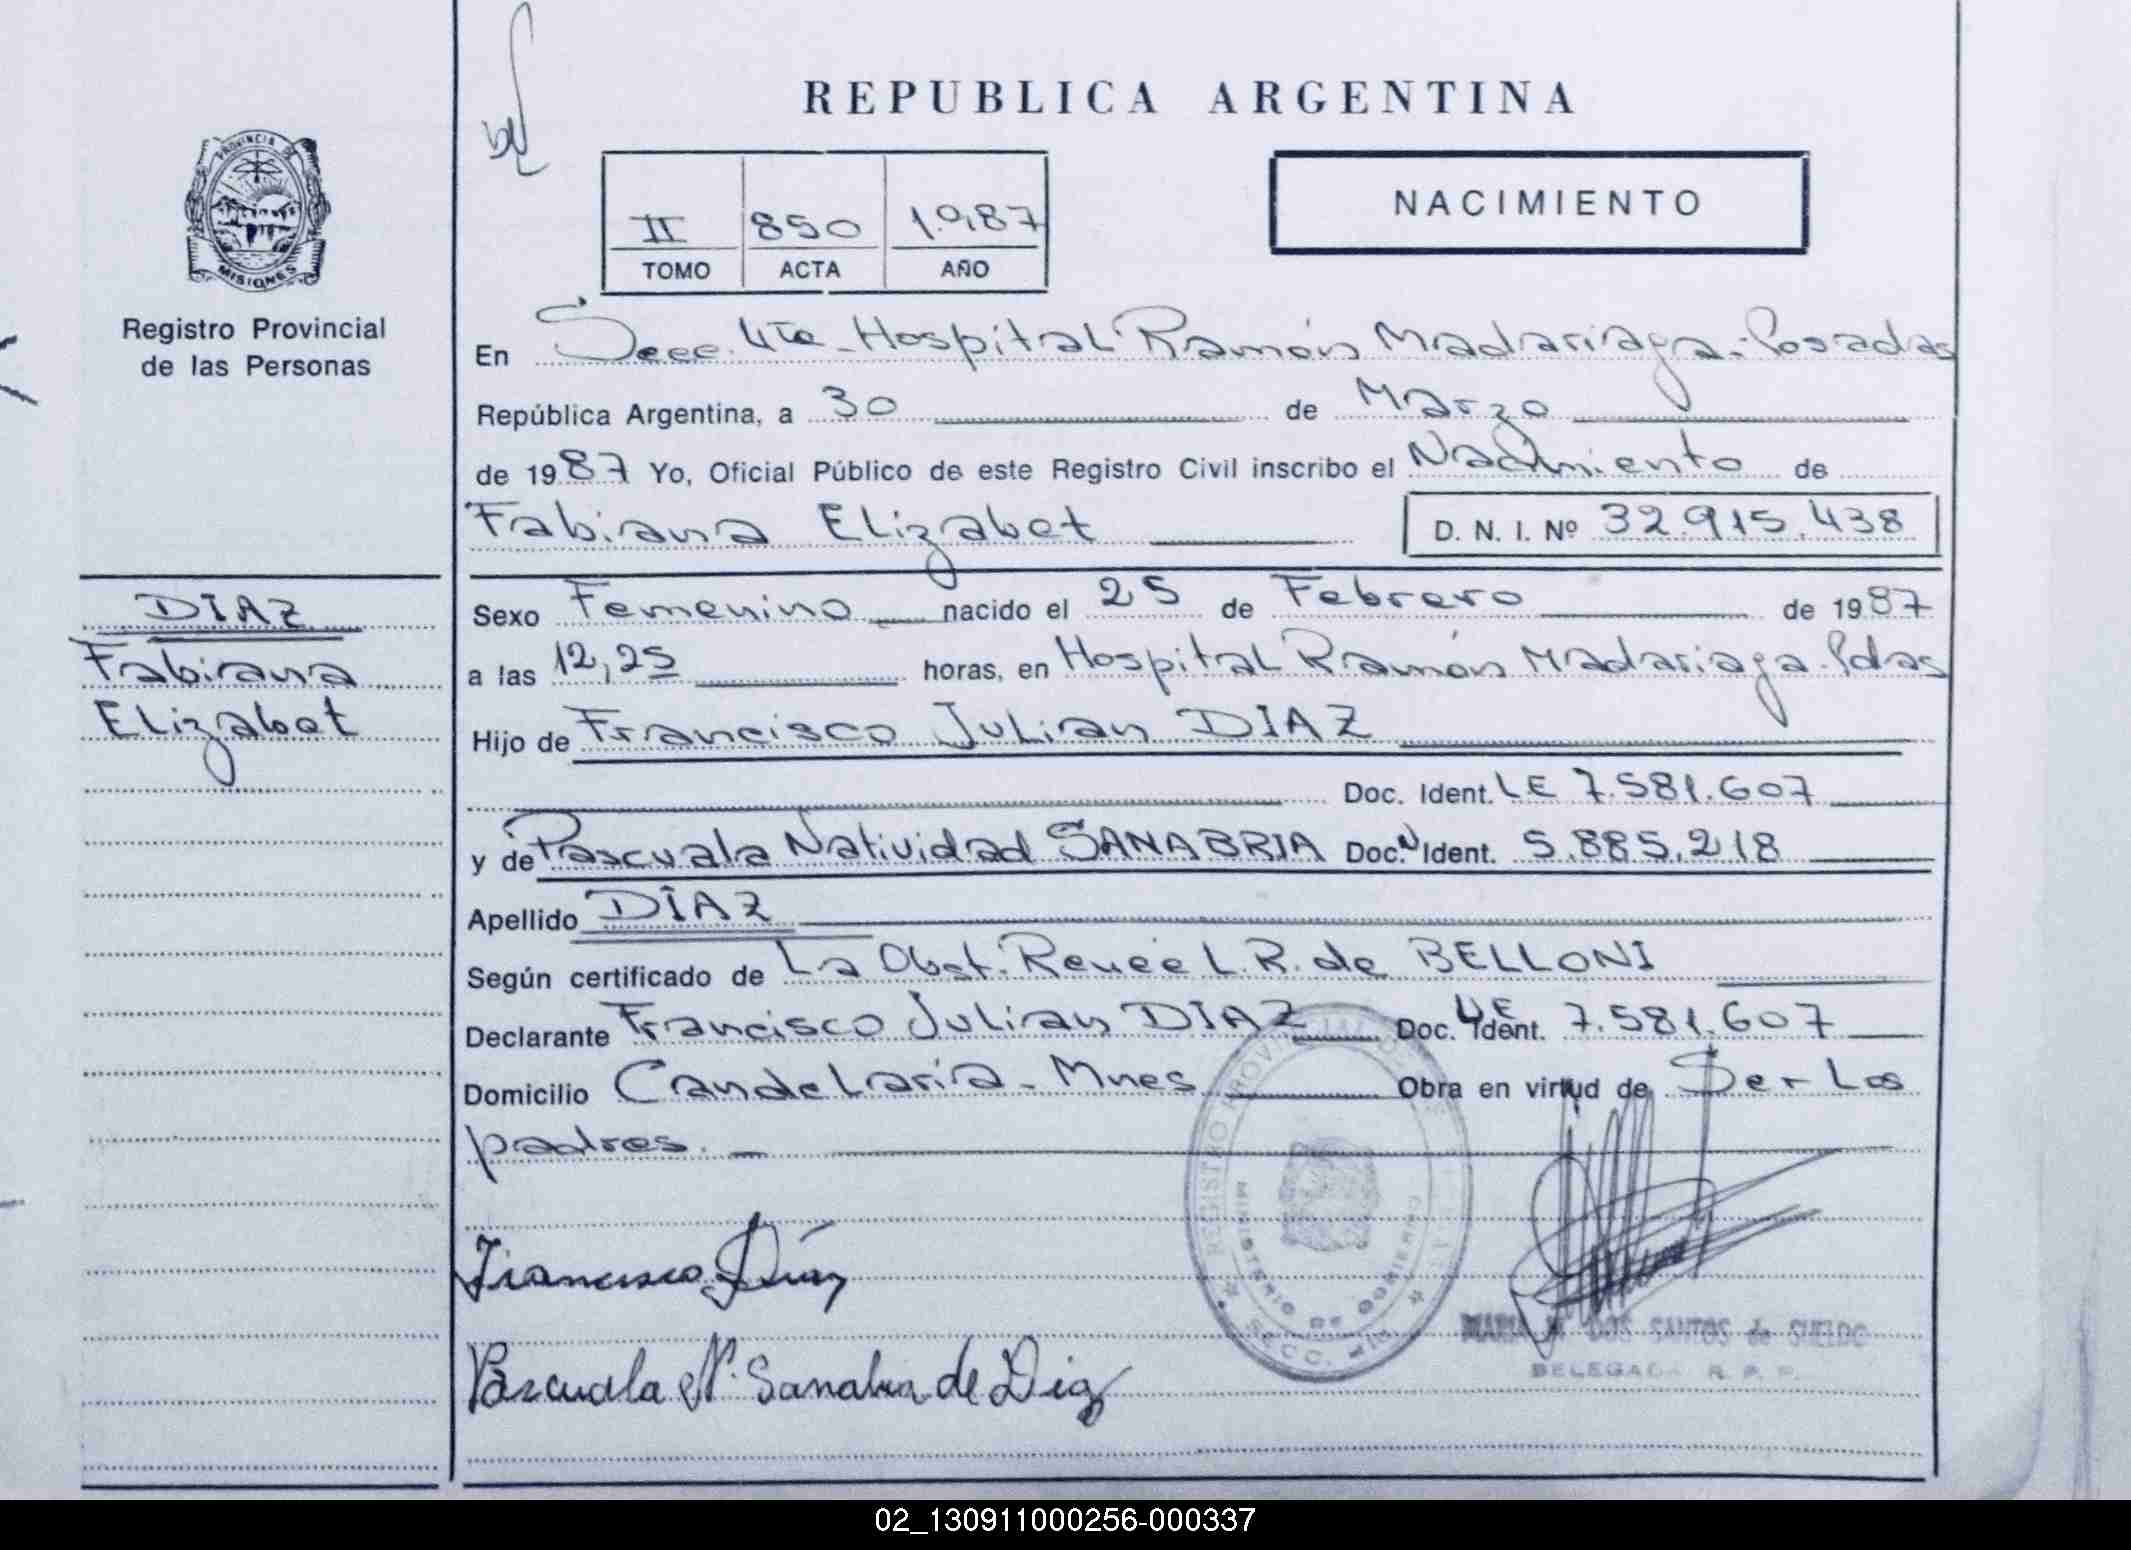 REPUBLICA ARGENTINA
PROVINCIA DE
MISIONES
Registro Provincial
de las Personas
II 850 1.987
TOMO ACTA AÑO
NACIMIENTO
En Secc. 4ta - Hospital Ramón Madariaga - Posadas
República Argentina, a 30 de Marzo
de 1987 Yo, Oficial Público de este Registro Civil inscribo el Nacimiento de
Fabiana Elizabet D. N. I. Nº 32.915.438
DIAZ
Fabiana
Elizabet
Sexo Femenino nacido el 25 de Febrero de 1987
a las 12,25 horas, en Hospital Ramón Madariaga - Pdas
Hijo de Francisco Julian DIAZ
Doc. Ident. LE 7.581.607
y de Pascuala Natividad SANABRIA Doc. Ident. 5.885.218
Apellido DIAZ
Según certificado de La Obst. Reneé L. R. de BELLONI
Declarante Francisco Julian DIAZ Doc. Ident. LE 7.581.607
Domicilio Candelaria - Mnes Obra en virtud de Ser Los
padres.
Francisco Díaz
Pascuala N. Sanabria de Diaz
REGISTRO PROVINCIAL DE
MINISTERIO DE GOBIERNO
DOS SANTOS de SUELDO
DELEGADA R. P. P.
02_130911000256-000337